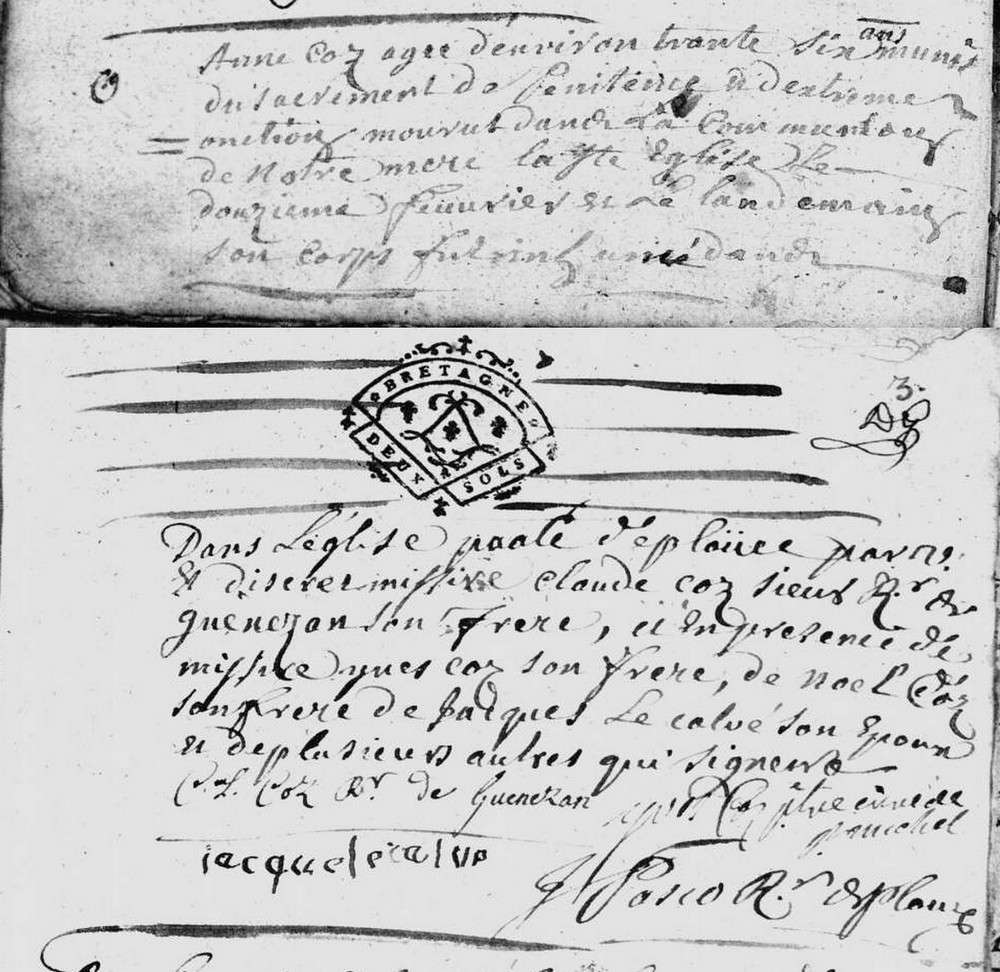 Anne Coz agee d'environ trante six ans munis
du sacrement de Penitence et d'extreme
onction mourut dans La Communion
de Notre mere la Ste Eglise Le
douzieme feuvrier et Le landemain
son corps fut inhumé dans
BRETAGNE
DEUX SOLS
3.
Dans L'église paale de plouec par
Et discret missire claude coz sieur Rr de
guenezan son frere, et En presence de
missire yves coz son frere, de noel Coz
son frere de Jacques Le calvé son Epoux
et de plusieurs autres qui signent
C. L. Coz Rr de Guenezan
Coz ptre curé de
jacque le calve
Pasco Rr de plouec